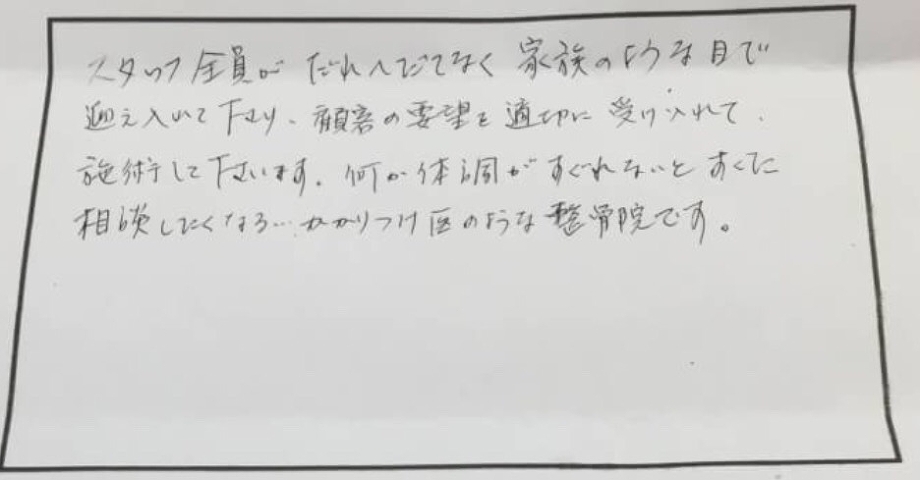 スタッフ全員が だれへだてなく 家族のような目で
迎え入れて下さり、顧客の要望を適切に 受け入れて、
施術して下さいます。何か体調がすぐれないと すぐに
相談したくなる…かかりつけ医のような 整骨院です。